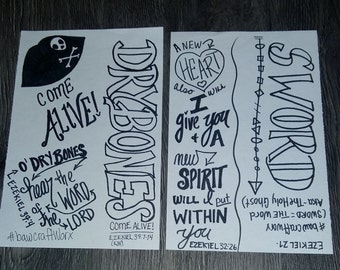 COME
ALIVE!
O' DRY BONES
hear the
WORD
of the
LORD
EZEKIEL
#bawcraftworx
DRY BONES
COME ALIVE!
EZEKIEL 37:7-14
(KJV)
A NEW
HEART
also will
I
give you
& A
new
SPIRIT
will I put
WITHIN
you
EZEKIEL 32:26
SWORD
EZEKIEL 21:
(SWORD = THE Word
AKA - THE HOLY Ghost)
#bawcraftworx